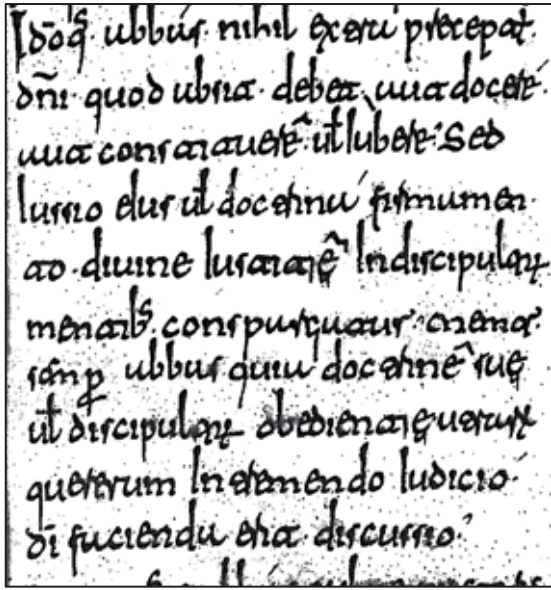 Idōq; abbas nihil extra precepat
dn̄i · quod absit · debet aut docere ·
aut constituere ul̄ iubere · Sed
iussio eius ul̄ doctrina fermen
to · diuine iustitię In discipuloꝝ
mentib; conspargatur · memor
semꝑ abbas quia doctrine suę
ul̄ discipuloꝝ obedientię utraꝝ
quererum In tremendo Iudicio ·
dī facienda erit · discussio ·